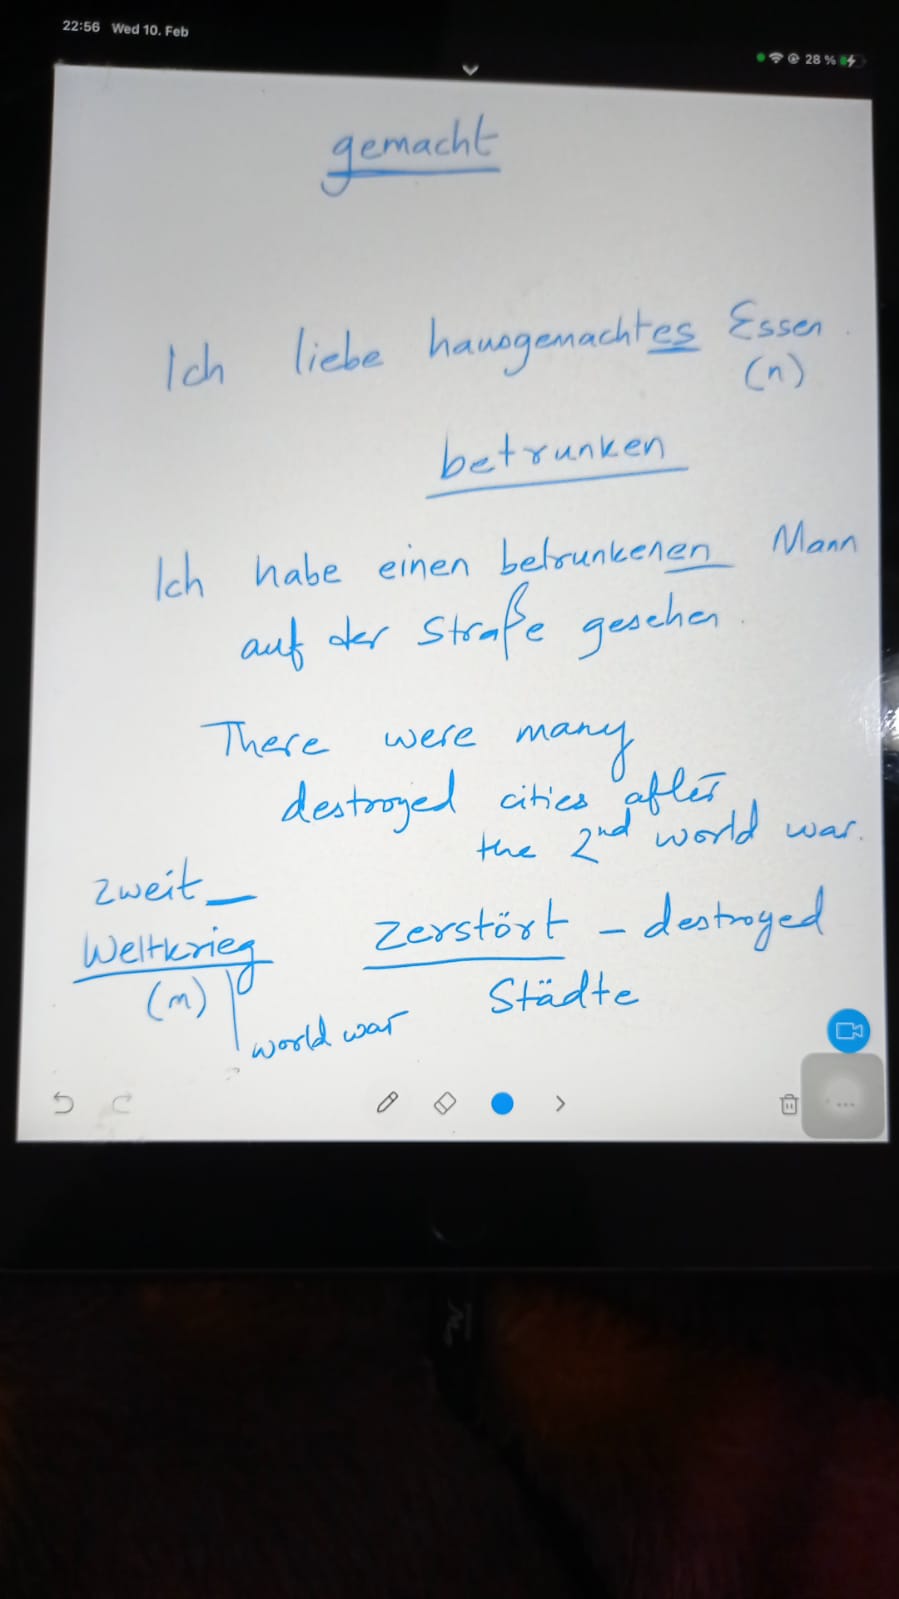 22:56 Wed 10. Feb
28 %
gemacht
Ich liebe hausgemachtes Essen.
(n)
betrunken
Ich habe einen betrunkenen Mann
auf der Straße gesehen.
There were many
destroyed cities after
the 2nd world war.
zweit_
Weltkrieg
(m)
world war
zerstört - destroyed
Städte